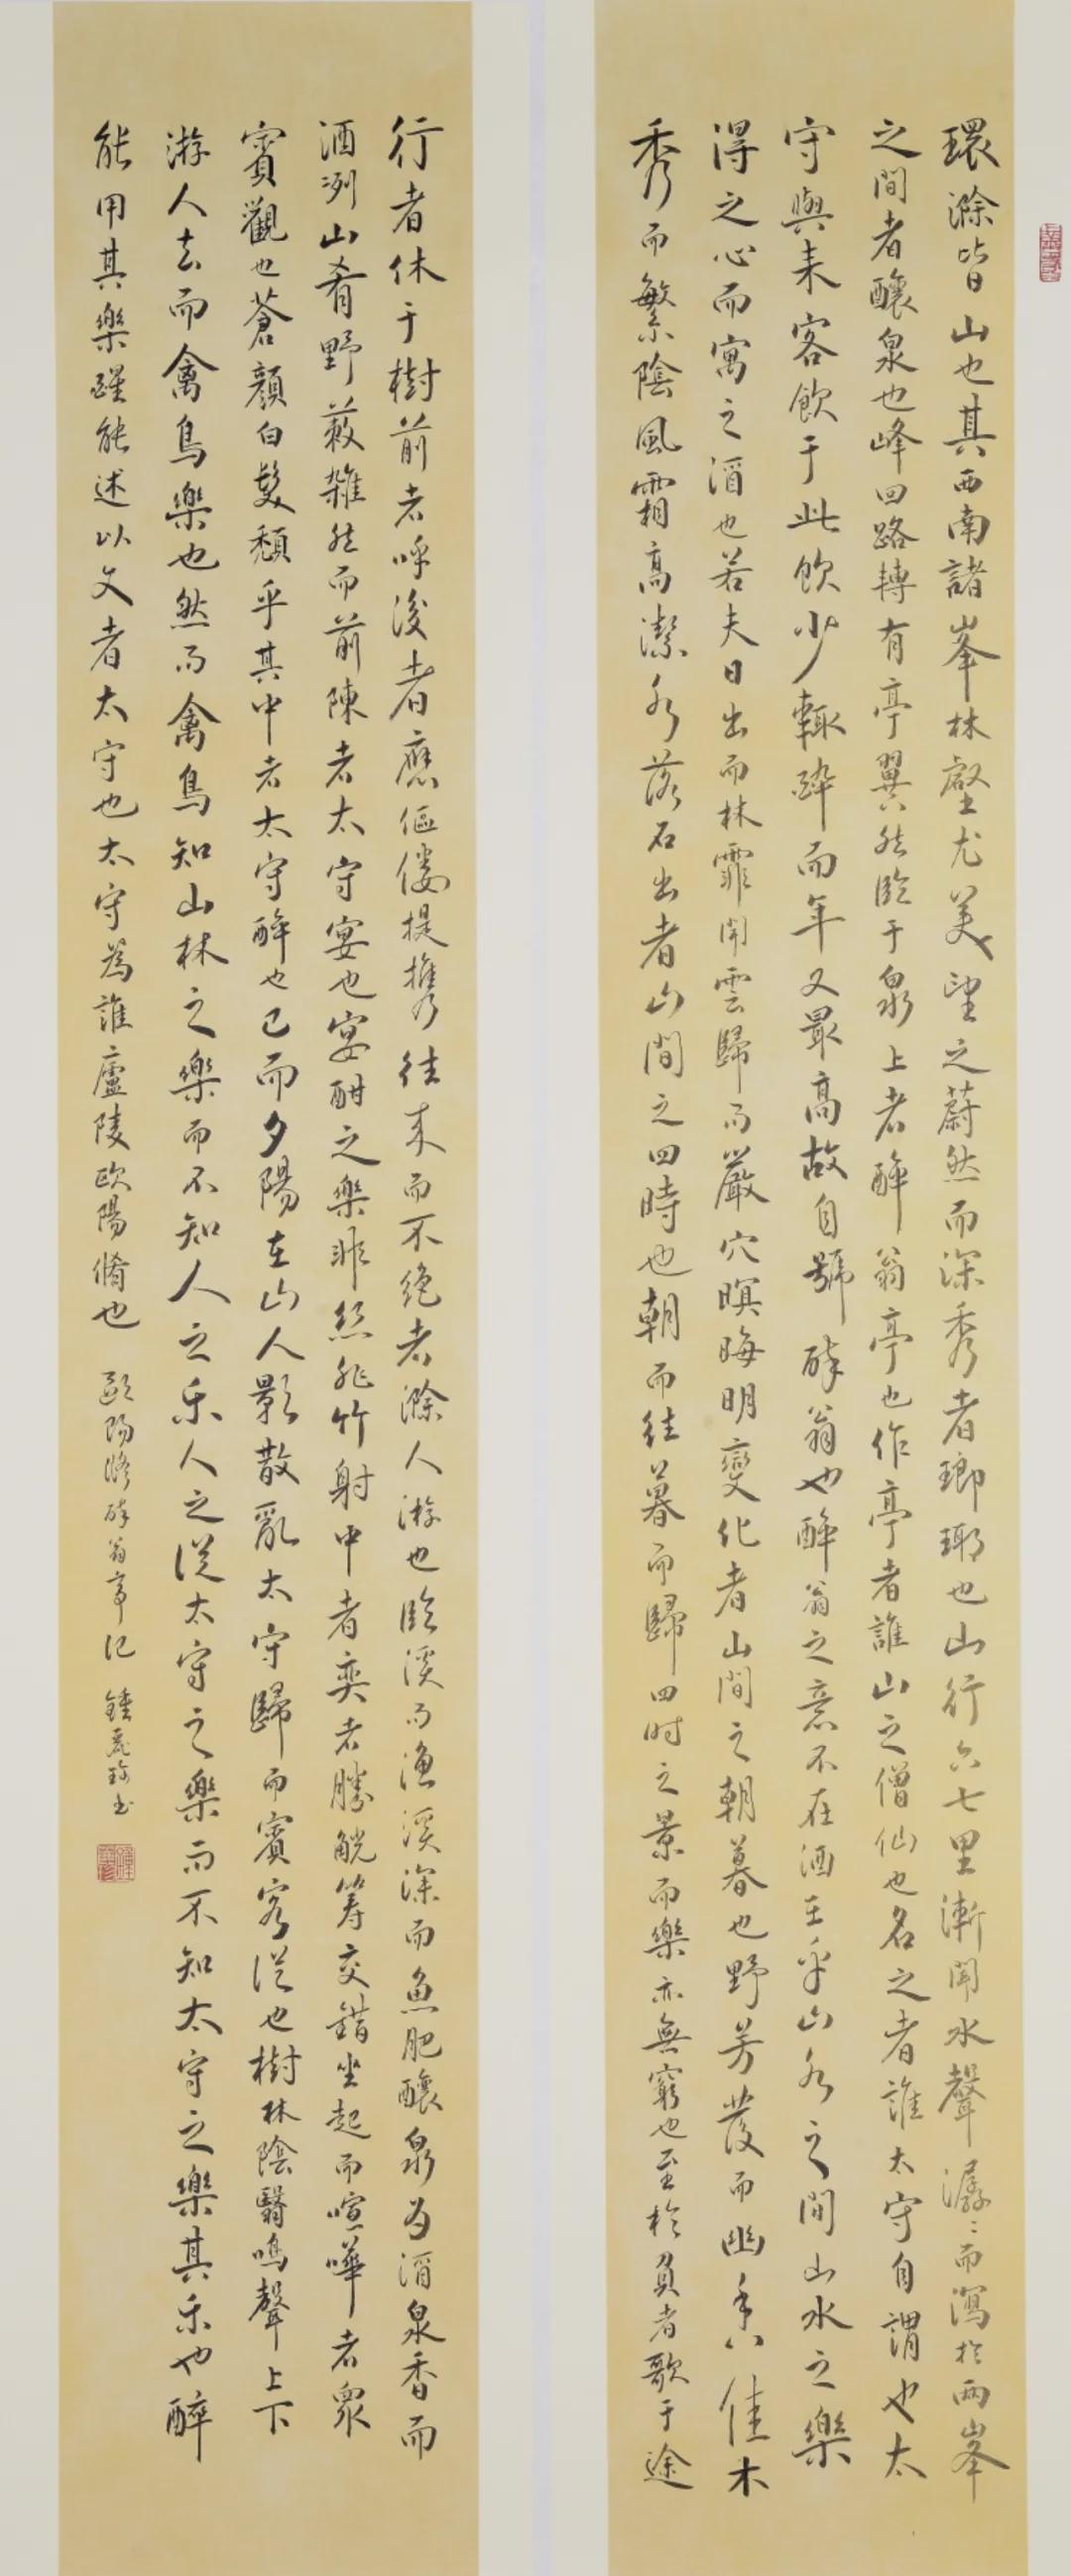 環滁皆山也其西南諸峯林壑尤美望之蔚然而深秀者瑯琊也山行六七里漸聞水聲潺〻而瀉於兩峯
之間者釀泉也峰回路轉有亭翼然臨于泉上者醉翁亭也作亭者誰山之僧仙也名之者誰太守自謂也太
守與來客飲于此飲少輒醉而年又最高故自號醉翁也醉翁之意不在酒在乎山水之間山水之樂
得之心而寓之酒也若夫日出而林霏開雲歸而巖穴暝晦明變化者山間之朝暮也野芳發而幽香佳木
秀而繁陰風霜高潔水落石出者山間之四時也朝而往暮而歸四时之景而樂亦無窮也至於負者歌于途
行者休于樹前者呼後者應傴僂提攜往來而不絶者滁人游也臨溪而漁溪深而魚肥釀泉為酒泉香而
酒洌山肴野蔌雜然而前陳者太守宴也宴酣之樂非絲非竹射中者奕者勝觥籌交錯坐起而喧嘩者衆
賓觀也蒼顔白髮頹乎其中者太守醉也已而夕陽在山人影散亂太守歸而賓客從也樹林陰翳鳴聲上下
游人去而禽鳥樂也然而禽鳥知山林之樂而不知人之乐人之從太守之樂而不知太守之樂其乐也醉
能用其樂醒能述以文者太守也太守為誰廬陵欧陽脩也
歐陽修醉翁亭记 鍾 书